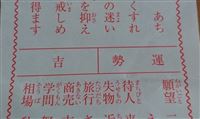 あち
くすれ
の迷い
を抑え
戒しめ
得ます
運勢
吉
願望
待人
失物
旅行
商売
学問
相場